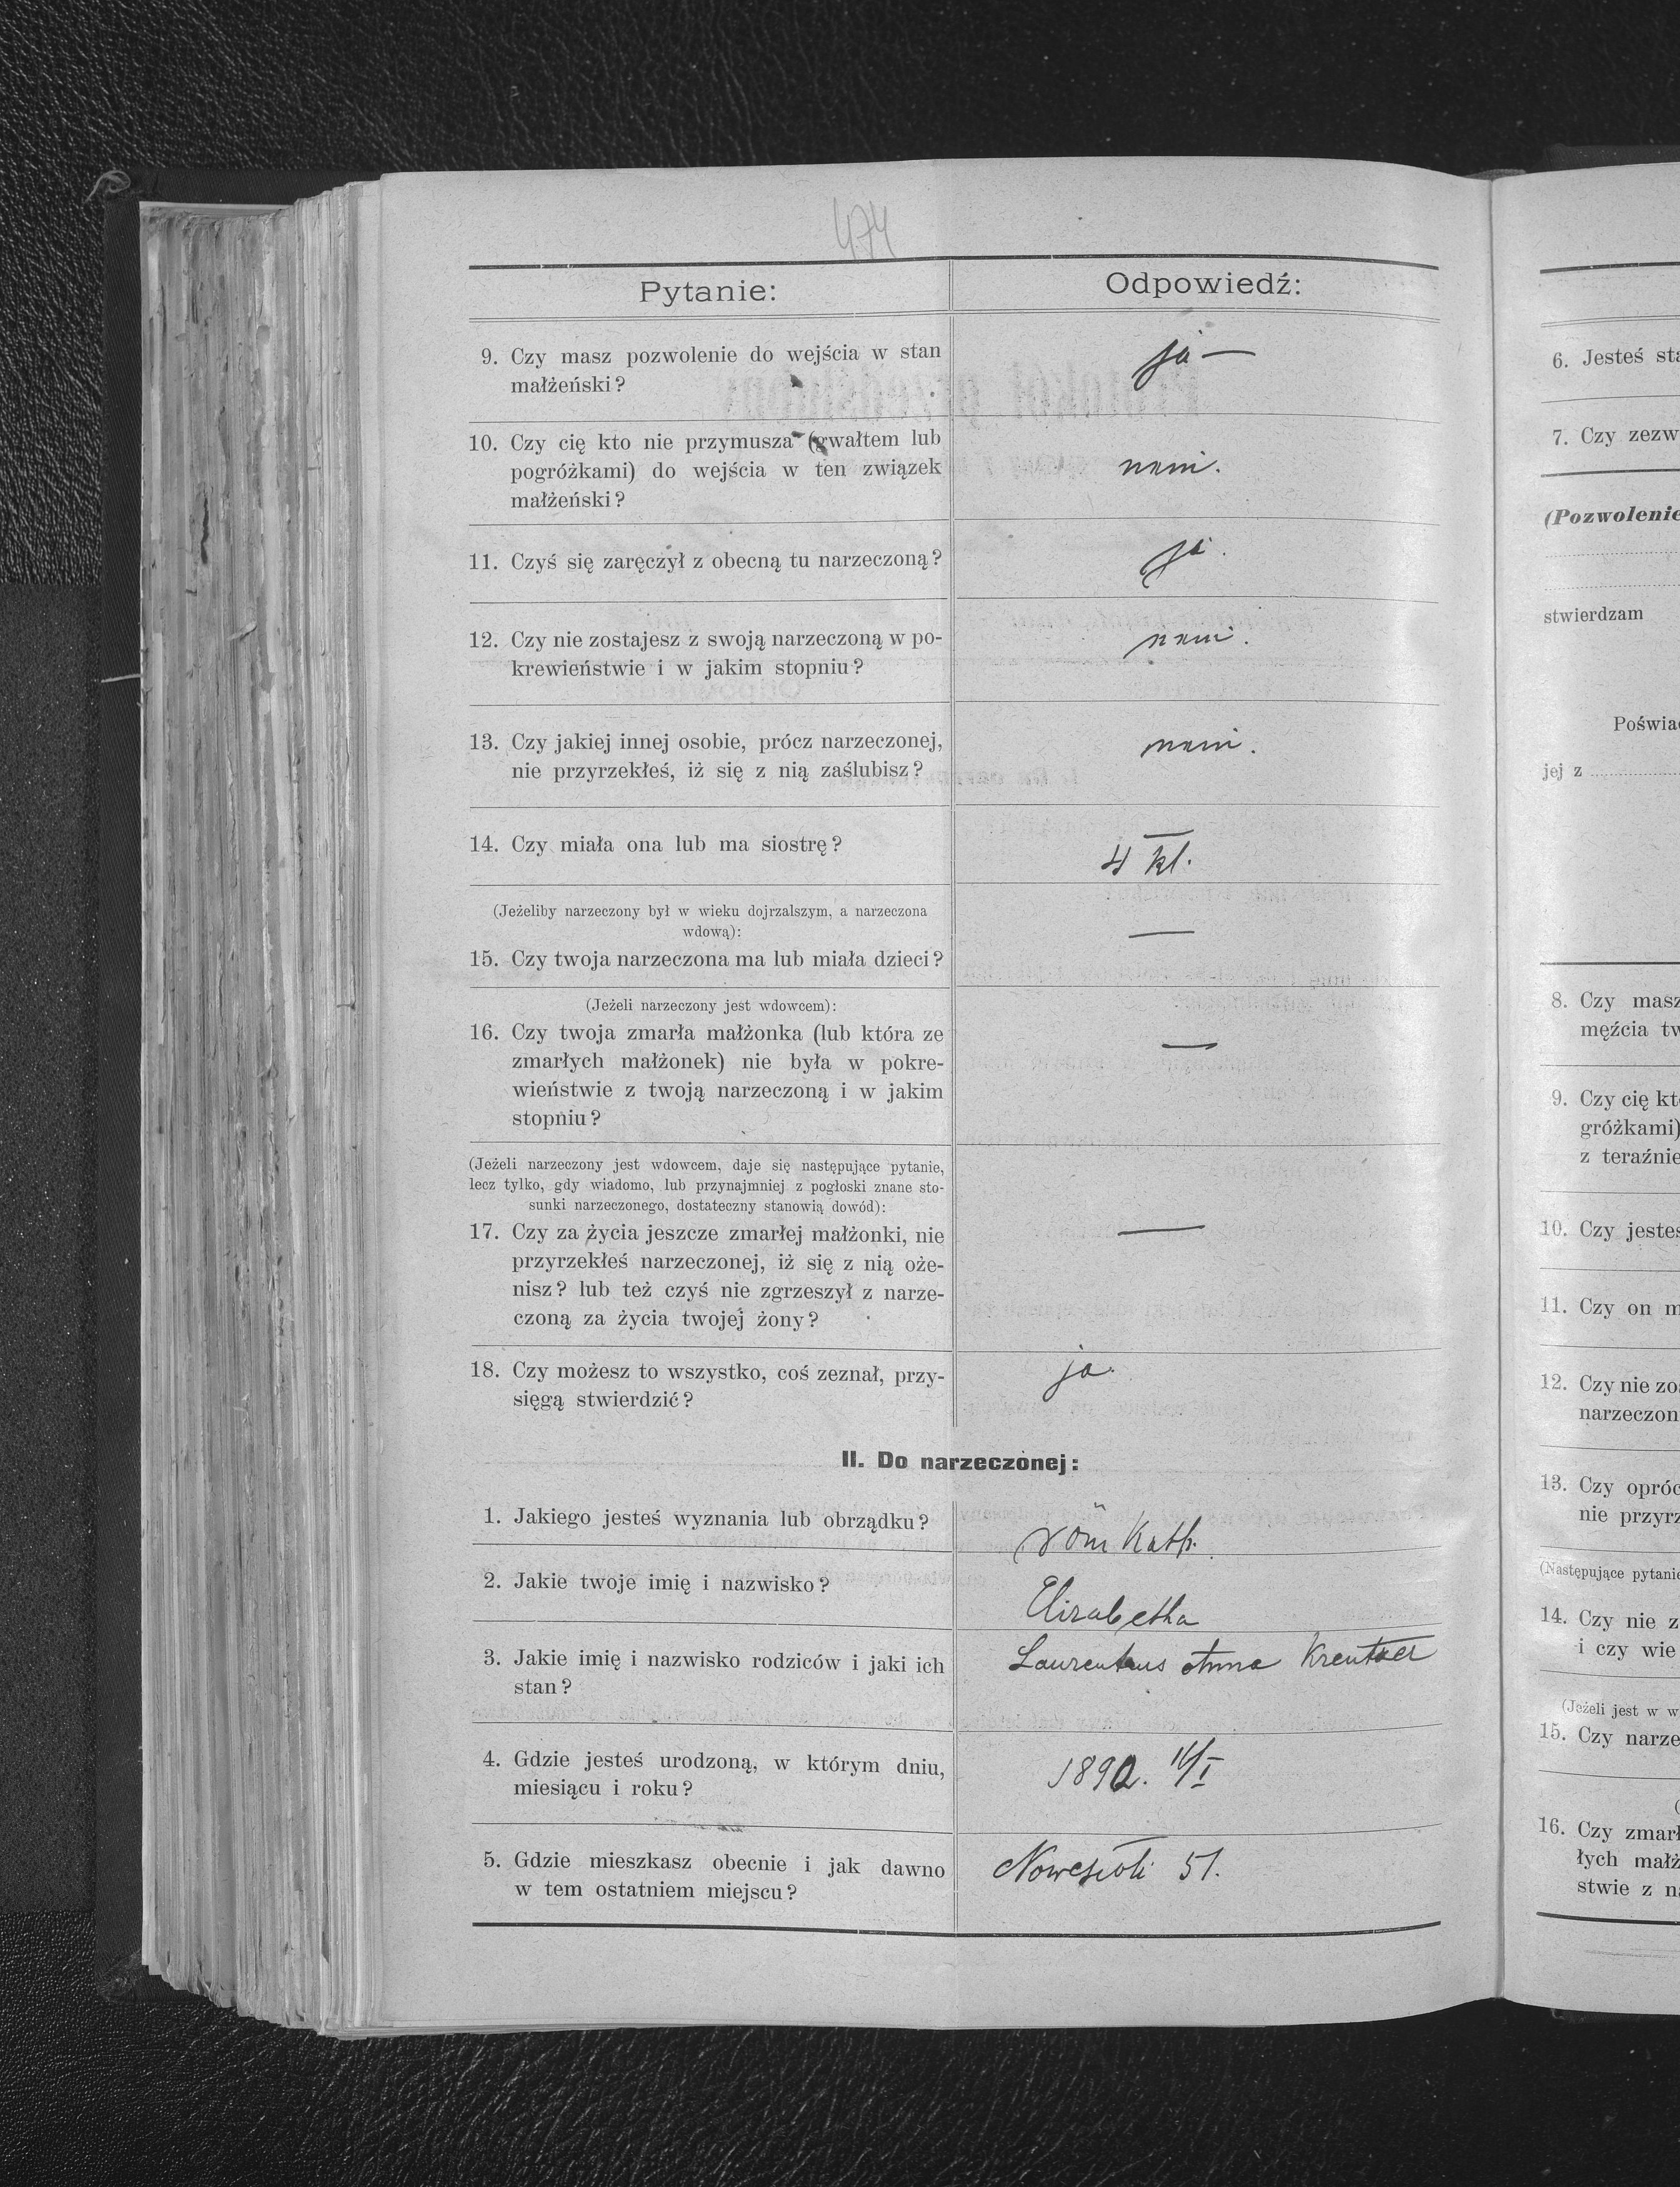 474
Pytanie:
Odpowiedź:
9. Czy masz pozwolenie do wejścia w stan
małżeński?
ja —
10. Czy cię kto nie przymusza (gwałtem lub
pogróżkami) do wejścia w ten związek
małżeński?
nein.
11. Czyś się zaręczył z obecną tu narzeczoną?
ja.
12. Czy nie zostajesz z swoją narzeczoną w po-
krewieństwie i w jakim stopniu?
nein.
13. Czy jakiej innej osobie, prócz narzeczonej,
nie przyrzekłeś, iż się z nią zaślubisz?
nein.
14. Czy miała ona lub ma siostrę?
4 kl.
(Jeżeliby narzeczony był w wieku dojrzalszym, a narzeczona
wdową):
15. Czy twoja narzeczona ma lub miała dzieci?
—
(Jeżeli narzeczony jest wdowcem):
16. Czy twoja zmarła małżonka (lub która ze
zmarłych małżonek) nie była w pokre-
wieństwie z twoją narzeczoną i w jakim
stopniu?
—
(Jeżeli narzeczony jest wdowcem, daje się następujące pytanie,
lecz tylko, gdy wiadomo, lub przynajmniej z pogłoski znane sto-
sunki narzeczonego, dostateczny stanowią dowód):
17. Czy za życia jeszcze zmarłej małżonki, nie
przyrzekłeś narzeczonej, iż się z nią oże-
nisz? lub też czyś nie zgrzeszył z narze-
czoną za życia twojej żony?
—
18. Czy możesz to wszystko, coś zeznał, przy-
sięgą stwierdzić?
ja.
II. Do narzeczonej:
1. Jakiego jesteś wyznania lub obrządku?
röm Kath.
2. Jakie twoje imię i nazwisko?
Elisabetha
3. Jakie imię i nazwisko rodziców i jaki ich
stan?
Laurentius Anna
4. Gdzie jesteś urodzoną, w którym dniu,
miesiącu i roku?
1892. 16/I
5. Gdzie mieszkasz obecnie i jak dawno
w tem ostatniem miejscu?
51.
6. Jesteś sta
7. Czy zezw
(Pozwolenie
stwierdzam
Poświad
jej z
8. Czy masz
męźcia tw
9. Czy cię kto
gróżkami)
z teraźnie
10. Czy jesteś
11. Czy on m
12. Czy nie zos
narzeczon
13. Czy opróc
nie przyrz
(Następujące pytanie
14. Czy nie z
i czy wie
(Jeżeli jest w w
15. Czy narze
(
16. Czy zmarł
łych małż
stwie z na